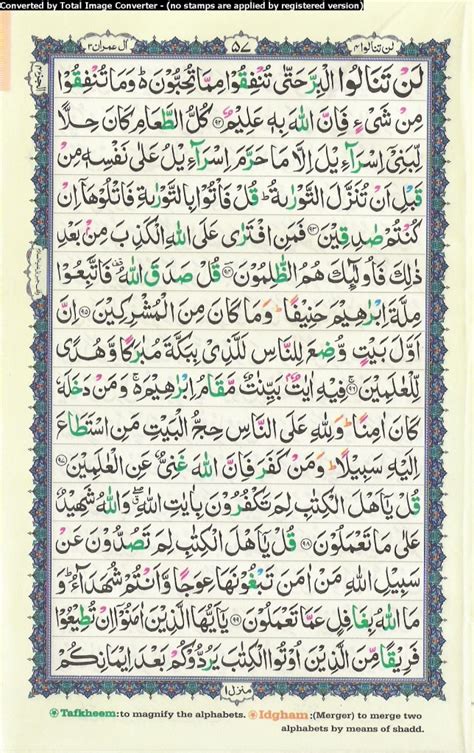 Converted by Total Image Converter - (no stamps are applied by registered version)
لن تنالوا ٤ ٥٧ اٰل عمرٰن ٣
لَنْ تَنَالُوا الْبِرَّ حَتّٰى تُنْفِقُوْا مِمَّا تُحِبُّوْنَ ؕ وَمَا تُنْفِقُوْا
مِنْ شَىْءٍ فَاِنَّ اللّٰهَ بِهٖ عَلِيْمٌ ﴿۹۲﴾ كُلُّ الطَّعَامِ كَانَ حِلًّا
لِّبَنِىْٓ اِسْرَآءِيْلَ اِلَّا مَا حَرَّمَ اِسْرَآءِيْلُ عَلٰى نَفْسِهٖ مِنْ
قَبْلِ اَنْ تُنَزَّلَ التَّوْرٰىةُ ؕ قُلْ فَاْتُوْا بِالتَّوْرٰىةِ فَاتْلُوْهَاۤ اِنْ
كُنْتُمْ صٰدِقِيْنَ ﴿۹۳﴾ فَمَنِ افْتَرٰى عَلَى اللّٰهِ الْكَذِبَ مِنْۢ بَعْدِ
ذٰلِكَ فَاُولٰٓئِكَ هُمُ الظّٰلِمُوْنَ ﴿۹۴﴾ قُلْ صَدَقَ اللّٰهُ فَاتَّبِعُوْا
مِلَّةَ اِبْرٰهِيْمَ حَنِيْفًا ؕ وَمَا كَانَ مِنَ الْمُشْرِكِيْنَ ﴿۹۵﴾ اِنَّ
اَوَّلَ بَيْتٍ وُّضِعَ لِلنَّاسِ لَلَّذِىْ بِبَكَّةَ مُبٰرَكًا وَّهُدًى
لِّلْعٰلَمِيْنَ ﴿۹۶﴾ فِيْهِ اٰيٰتٌۢ بَيِّنٰتٌ مَّقَامُ اِبْرٰهِيْمَ ۚ وَمَنْ دَخَلَهٗ
كَانَ اٰمِنًا ؕ وَلِلّٰهِ عَلَى النَّاسِ حِجُّ الْبَيْتِ مَنِ اسْتَطَاعَ
اِلَيْهِ سَبِيْلًا ؕ وَمَنْ كَفَرَ فَاِنَّ اللّٰهَ غَنِىٌّ عَنِ الْعٰلَمِيْنَ ﴿۹۷﴾
قُلْ يٰۤاَهْلَ الْكِتٰبِ لِمَ تَكْفُرُوْنَ بِاٰيٰتِ اللّٰهِ ۖ وَاللّٰهُ شَهِيْدٌ
عَلٰى مَا تَعْمَلُوْنَ ﴿۹۸﴾ قُلْ يٰۤاَهْلَ الْكِتٰبِ لِمَ تَصُدُّوْنَ عَنْ
سَبِيْلِ اللّٰهِ مَنْ اٰمَنَ تَبْغُوْنَهَا عِوَجًا وَّاَنْتُمْ شُهَدَآءُ ؕ وَ
مَا اللّٰهُ بِغَافِلٍ عَمَّا تَعْمَلُوْنَ ﴿۹۹﴾ يٰۤاَيُّهَا الَّذِيْنَ اٰمَنُوْۤا اِنْ تُطِيْعُوْا
فَرِيْقًا مِّنَ الَّذِيْنَ اُوْتُوا الْكِتٰبَ يَرُدُّوْكُمْ بَعْدَ اِيْمَانِكُمْ
منزل ١
Tafkheem:to magnify the alphabets. Idgham:(Merger) to merge two
alphabets by means of shadd.